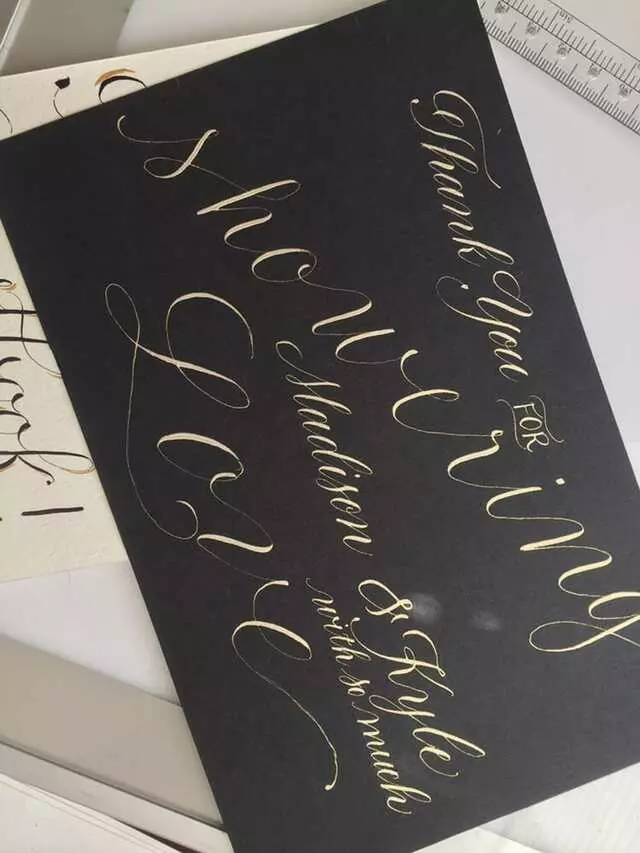 Thank You FOR
showering
Madison & Kyle
with so much
Love